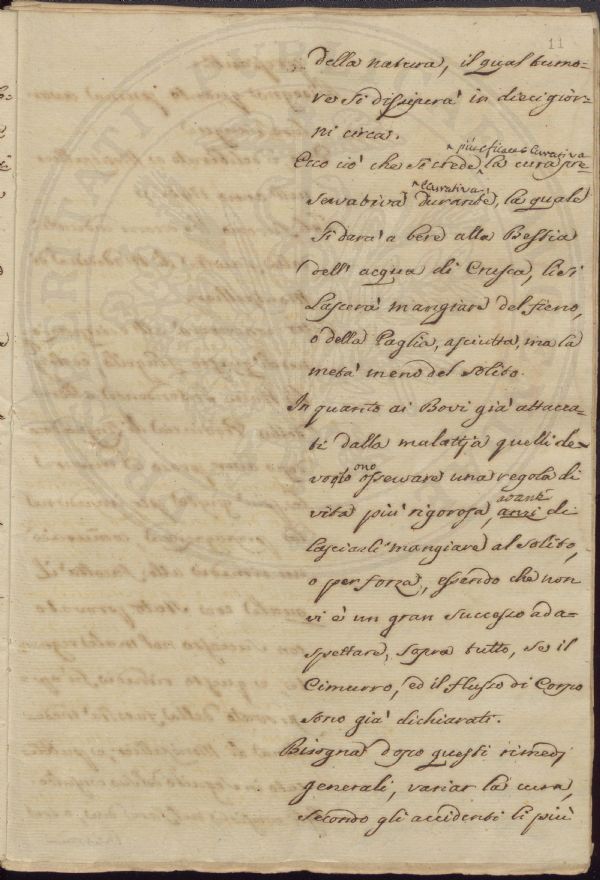 11
della natura, il qual tumo-
re si dissiperà in dieci gior-
ni circa.
più efficace Curativa
Ecco ciò che si crede la cura pre-
Curativa
servativa durante, la quale
si darà a bere alla Bestia
dell' acqua di Crusca, li si
Lascerà mangiare del fieno,
o della Paglia, asciutta, ma la
metà meno del solito.
In quanto ai Bovi già attacca-
ti dalla malattja quelli de-
ono
vono osservare una regola di
avanti
vita più rigorosa, anzi di
lasciarli mangiare al solito,
o per forza, essendo che non
vi è un gran successo ad a-
spettare, sopra tutto, se il
Cimurro, ed il flusso di Corpo
sono già dichiarati.
Bisogna dopo questi rimedj
generali, variar la cura,
secondo gli accidenti li più